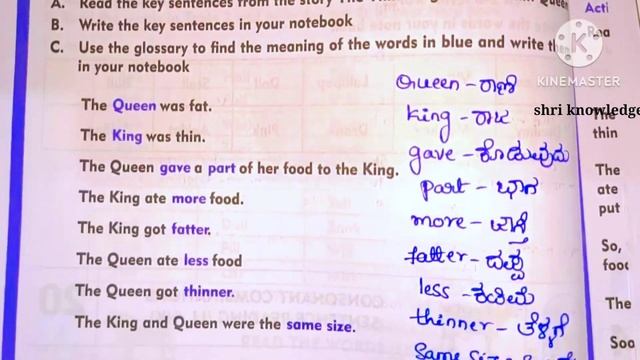 A. Read the key sentences from the story The
B. Write the key sentences in your notebook
C. Use the glossary to find the meaning of the words in blue and write
in your notebook
The Queen was fat.
The King was thin.
The Queen gave a part of her food to the King.
The King ate more food.
The King got fatter.
The Queen ate less food
The Queen got thinner.
The King and Queen were the same size.
Queen - ರಾಣಿ
King - ರಾಜ
gave - ಕೊಡುವುದು
part - ಭಾಗ
more - ಜಾಸ್ತಿ
fatter - ದಪ್ಪ
less - ಕಡಿಮೆ
thinner - ತೆಳ್ಳಗೆ
Same size
KINEMASTER
shri knowledge
Acti
The
thin
The
ate
put
So,
food
The
Soo